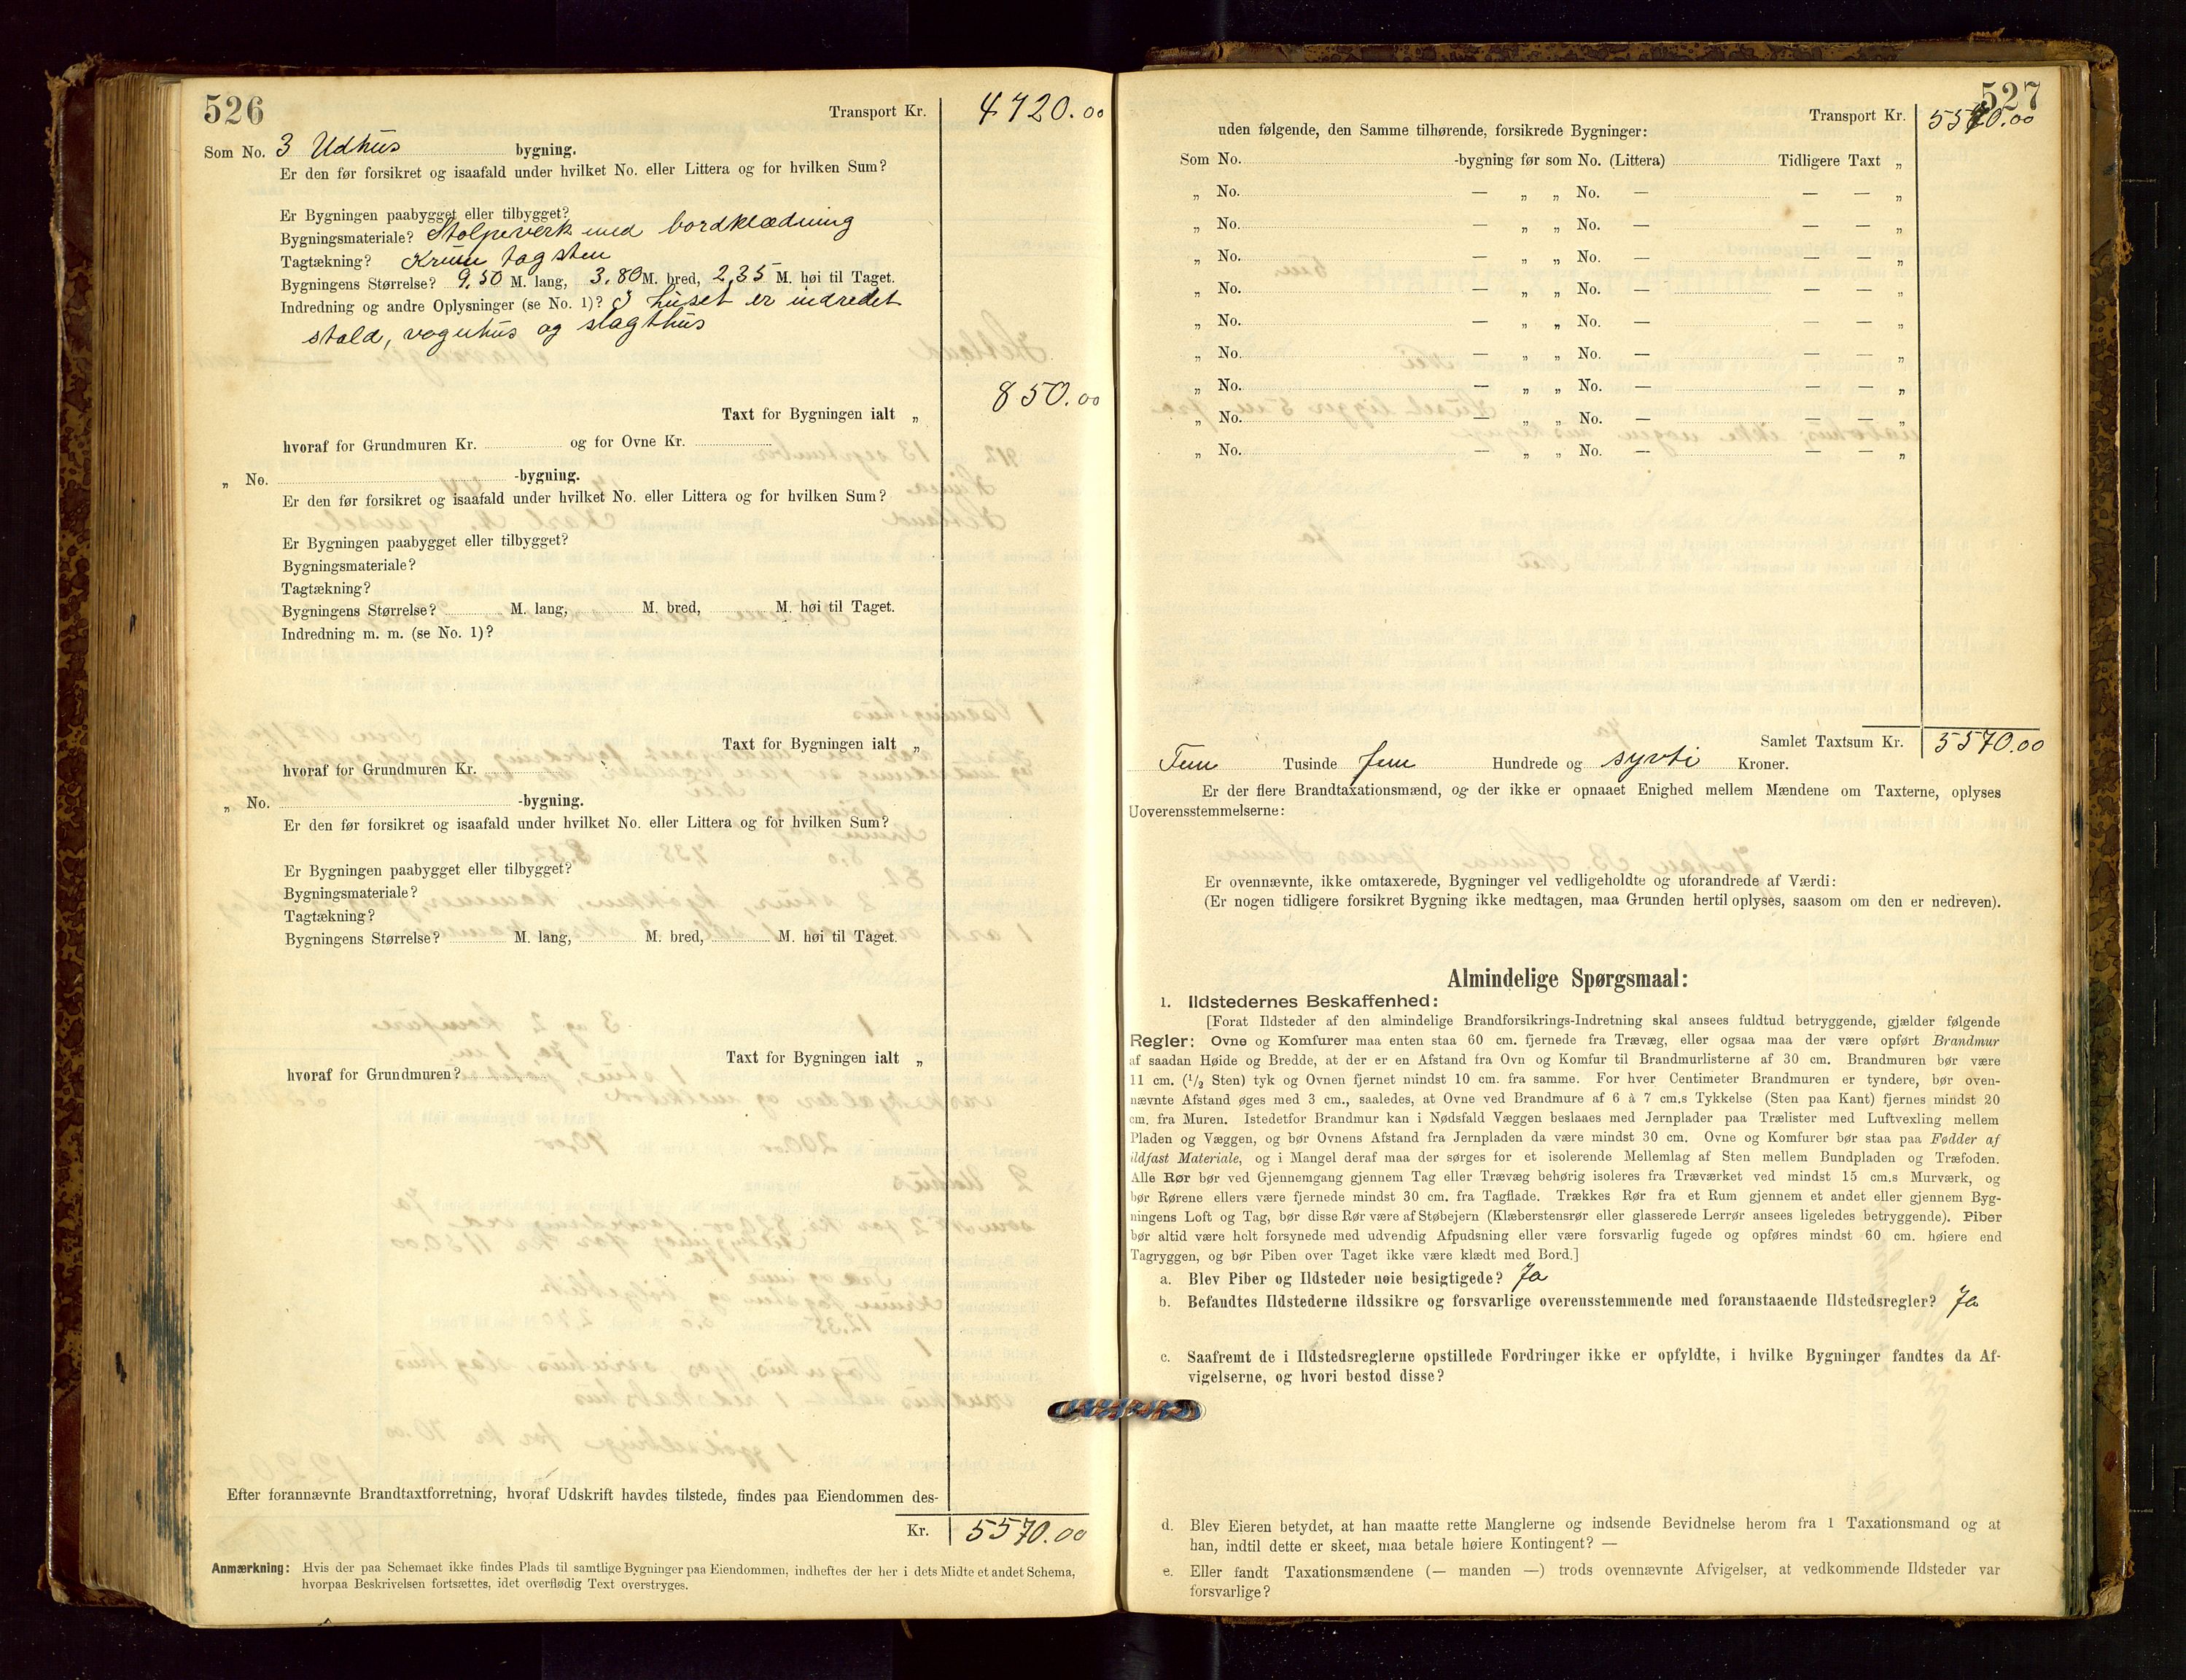 526
Transport Kr. 4720.00
Som No. 3 Udhus bygning.
Er den før forsikret og isaafald under hvilket No. eller Littera og for hvilken Sum?
Er Bygningen paabygget eller tilbygget?
Bygningsmateriale? Stolpeverk med bordklædning
Tagtækning? Krum tagsten
Bygningens Størrelse? 9,50 M. lang, 3,80 M. bred, 2,35 M. høi til Taget.
Indredning og andre Oplysninger (se No. 1)? I huset er indredet
stald, vognhus og slagthus
850.00
Taxt for Bygningen ialt „
hvoraf for Grundmuren Kr. og for Ovne Kr.
„ No. -bygning.
Er den før forsikret og isaafald under hvilket No. eller Littera og for hvilken Sum?
Er Bygningen paabygget eller tilbygget?
Bygningsmateriale?
Tagtækning?
Bygningens Størrelse? M. lang, M. bred, M. høi til Taget.
Indredning m. m. (se No. 1)?
Taxt for Bygningen ialt „
hvoraf for Grundmuren Kr.
„ No. -bygning.
Er den før forsikret og isaafald under hvilket No. eller Littera og for hvilken Sum?
Er Bygningen paabygget eller tilbygget?
Bygningsmateriale?
Tagtækning?
Bygningens Størrelse? M. lang, M. bred, M. høi til Taget.
Taxt for Bygningen ialt „
hvoraf for Grundmuren?
Efter forannævnte Brandtaxtforretning, hvoraf Udskrift havdes tilstede, findes paa Eiendommen des-
Kr. 5570.00
Anmærkning: Hvis der paa Schemaet ikke findes Plads til samtlige Bygninger paa Eiendommen, indheftes der her i dets Midte et andet Schema,
hvorpaa Beskrivelsen fortsættes, idet overflødig Text overstryges.
527
Transport Kr. 5570.00
uden følgende, den Samme tilhørende, forsikrede Bygninger:
Som No. -bygning før som No. (Littera) Tidligere Taxt „
„ No. — „ „ No. — — — „
„ No. — „ „ No. — — — „
„ No. — „ „ No. — — — „
„ No. — „ „ No. — — — „
„ No. — „ „ No. — — — „
„ No. — „ „ No. — — — „
„ No. — „ „ No. — — — „
„ No. — „ „ No. — — — „
„ No. — „ „ No. — — — „
Samlet Taxtsum Kr. 5570.00
Fem Tusinde fem Hundrede og syvti Kroner.
Er der flere Brandtaxationsmænd, og der ikke er opnaaet Enighed mellem Mændene om Taxterne, oplyses
Uoverensstemmelserne:
Er ovennævnte, ikke omtaxerede, Bygninger vel vedligeholdte og uforandrede af Værdi:
(Er nogen tidligere forsikret Bygning ikke medtagen, maa Grunden hertil oplyses, saasom om den er nedreven).
Almindelige Spørgsmaal:
1. Ildstedernes Beskaffenhed:
[Forat Ildsteder af den almindelige Brandforsikrings-Indretning skal ansees fuldtud betryggende, gjælder følgende
Regler: Ovne og Komfurer maa enten staa 60 cm. fjernede fra Trævæg, eller ogsaa maa der være opført Brandmur
af saadan Høide og Bredde, at der er en Afstand fra Ovn og Komfur til Brandmurlisterne af 30 cm. Brandmuren bør være
11 cm. (1/2 Sten) tyk og Ovnen fjernet mindst 10 cm. fra samme. For hver Centimeter Brandmuren er tyndere, bør oven-
nævnte Afstand øges med 3 cm., saaledes, at Ovne ved Brandmure af 6 à 7 cm.s Tykkelse (Sten paa Kant) fjernes mindst 20
cm. fra Muren. Istedetfor Brandmur kan i Nødsfald Væggen beslaaes med Jernplader paa Trælister med Luftvexling mellem
Pladen og Væggen, og bør Ovnens Afstand fra Jernpladen da være mindst 30 cm. Ovne og Komfurer bør staa paa Fødder af
ildfast Materiale, og i Mangel deraf maa der sørges for et isolerende Mellemlag af Sten mellem Bundpladen og Træfoden.
Alle Rør bør ved Gjennemgang gjennem Tag eller Trævæg behørig isoleres fra Træværket ved mindst 15 cm.s Murværk, og
bør Rørene ellers være fjernede mindst 30 cm. fra Tagflade. Trækkes Rør fra et Rum gjennem et andet eller gjennem Byg-
ningens Loft og Tag, bør disse Rør være af Støbejern (Klæberstensrør eller glasserede Lerrør ansees ligeledes betryggende). Piber
bør altid være holt forsynede med udvendig Afpudsning eller være forsvarlig fugede og opføres mindst 60 cm. høiere end
Tagryggen, og bør Piben over Taget ikke være klædt med Bord.]
a. Blev Piber og Ildsteder nøie besigtigede? Ja
b. Befandtes Ildstederne ildssikre og forsvarlige overensstemmende med foranstaaende Ildstedsregler? Ja
c. Saafremt de i Ildstedsreglerne opstillede Fordringer ikke er opfyldte, i hvilke Bygninger fandtes da Af-
vigelserne, og hvori bestod disse?
d. Blev Eieren betydet, at han maatte rette Manglerne og indsende Bevidnelse herom fra 1 Taxationsmand og at
han, indtil dette er skeet, maa betale høiere Kontingent? —
e. Eller fandt Taxationsmændene (— manden —) trods ovennævnte Afvigelser, at vedkommende Ildsteder var
forsvarlige?